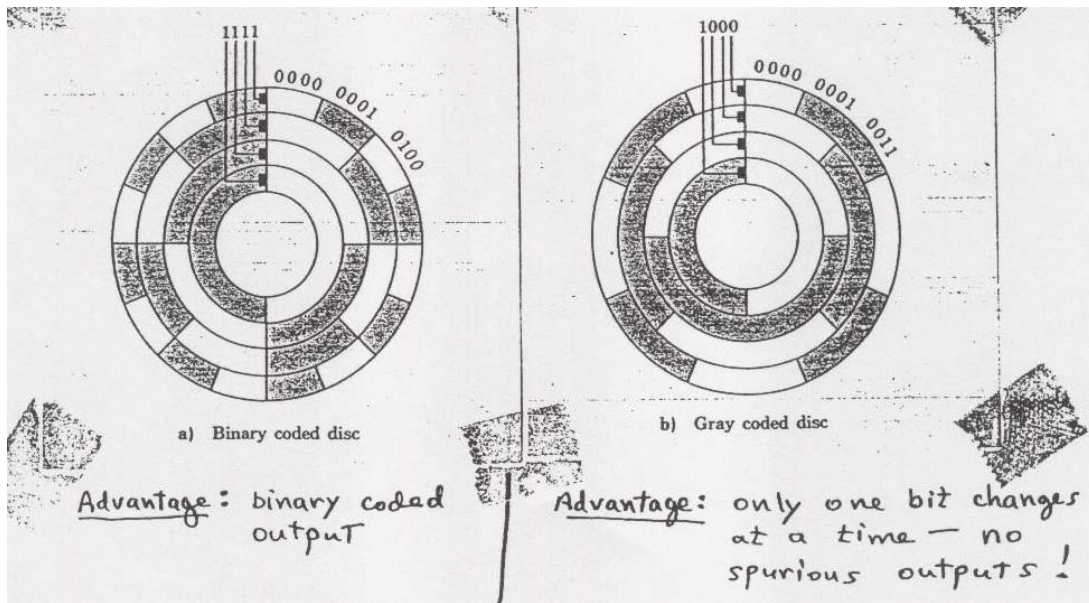 1111
0000
0001
0100
a) Binary coded disc
Advantage: binary coded
output
1000
0000
0001
0011
b) Gray coded disc
Advantage: only one bit changes
at a time — no
spurious outputs!